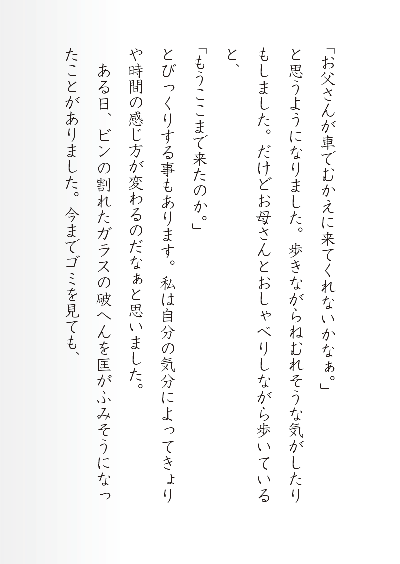 「お父さんが車でむかえに来てくれないかなぁ。」
と思うようになりました。歩きながらねむれそうな気がしたり
もしました。だけどお母さんとおしゃべりしながら歩いている
と、
「もうここまで来たのか。」
とびっくりする事もあります。私は自分の気分によってきょり
や時間の感じ方が変わるのだなぁと思いました。
　ある日、ビンの割れたガラスの破へんを匡がふみそうになっ
たことがありました。今までゴミを見ても、